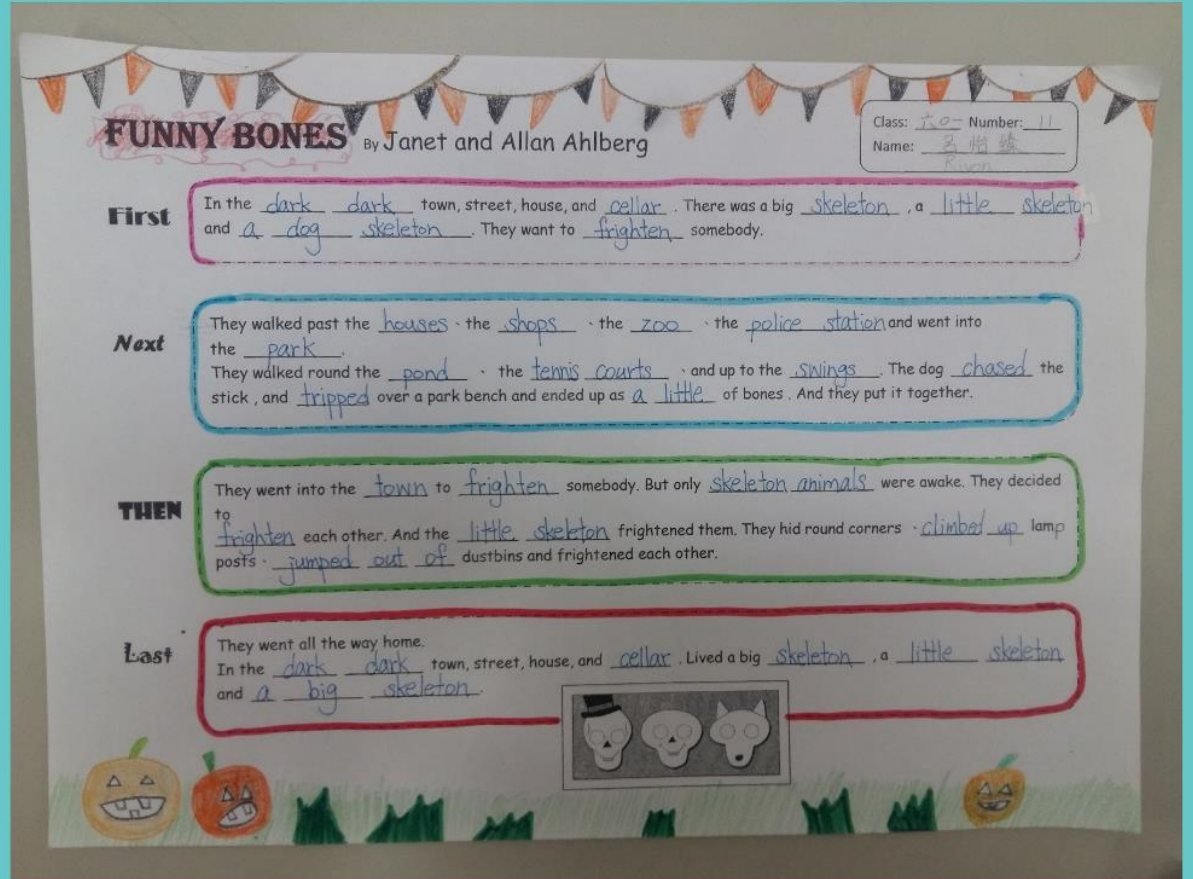 FUNNY BONES By Janet and Allan Ahlberg
Class: 六0一 Number: 11
Name: 怡
First
In the dark dark town, street, house, and cellar. There was a big skeleton, a little skeleton
and a dog skeleton. They want to frighten somebody.
Next
They walked past the houses、the shops、the zoo、the police station and went into
the park.
They walked round the pond、the tennis courts、and up to the swings. The dog chased the
stick, and tripped over a park bench and ended up as a little of bones. And they put it together.
THEN
They went into the town to frighten somebody. But only skeleton animals were awake. They decided
to
frighten each other. And the little skeleton frightened them. They hid round corners、climbed up lamp
posts、jumped out of dustbins and frightened each other.
Last
They went all the way home.
In the dark dark town, street, house, and cellar. Lived a big skeleton, a little skeleton
and a big skeleton.